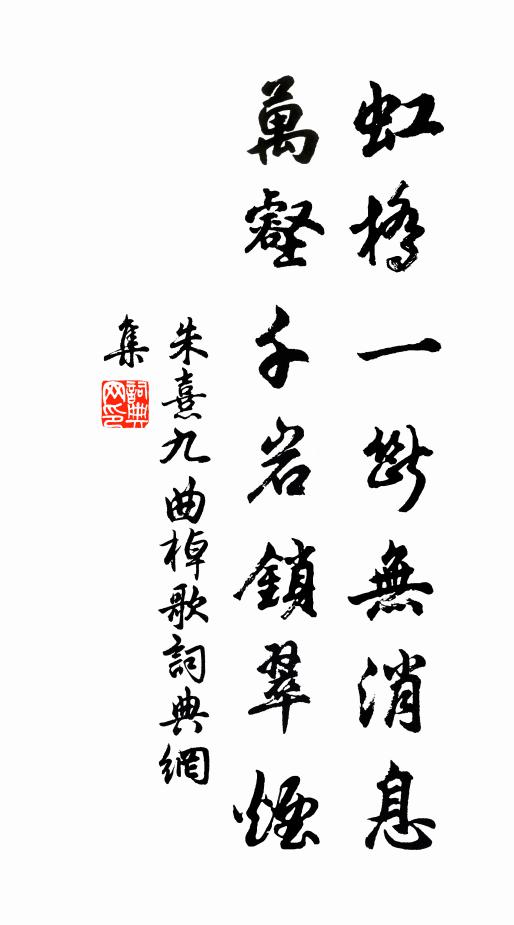 虹橋一斷無消息
萬壑千岩鎖翠煙
朱熹九曲棹歌詞典網
集
詞典網印